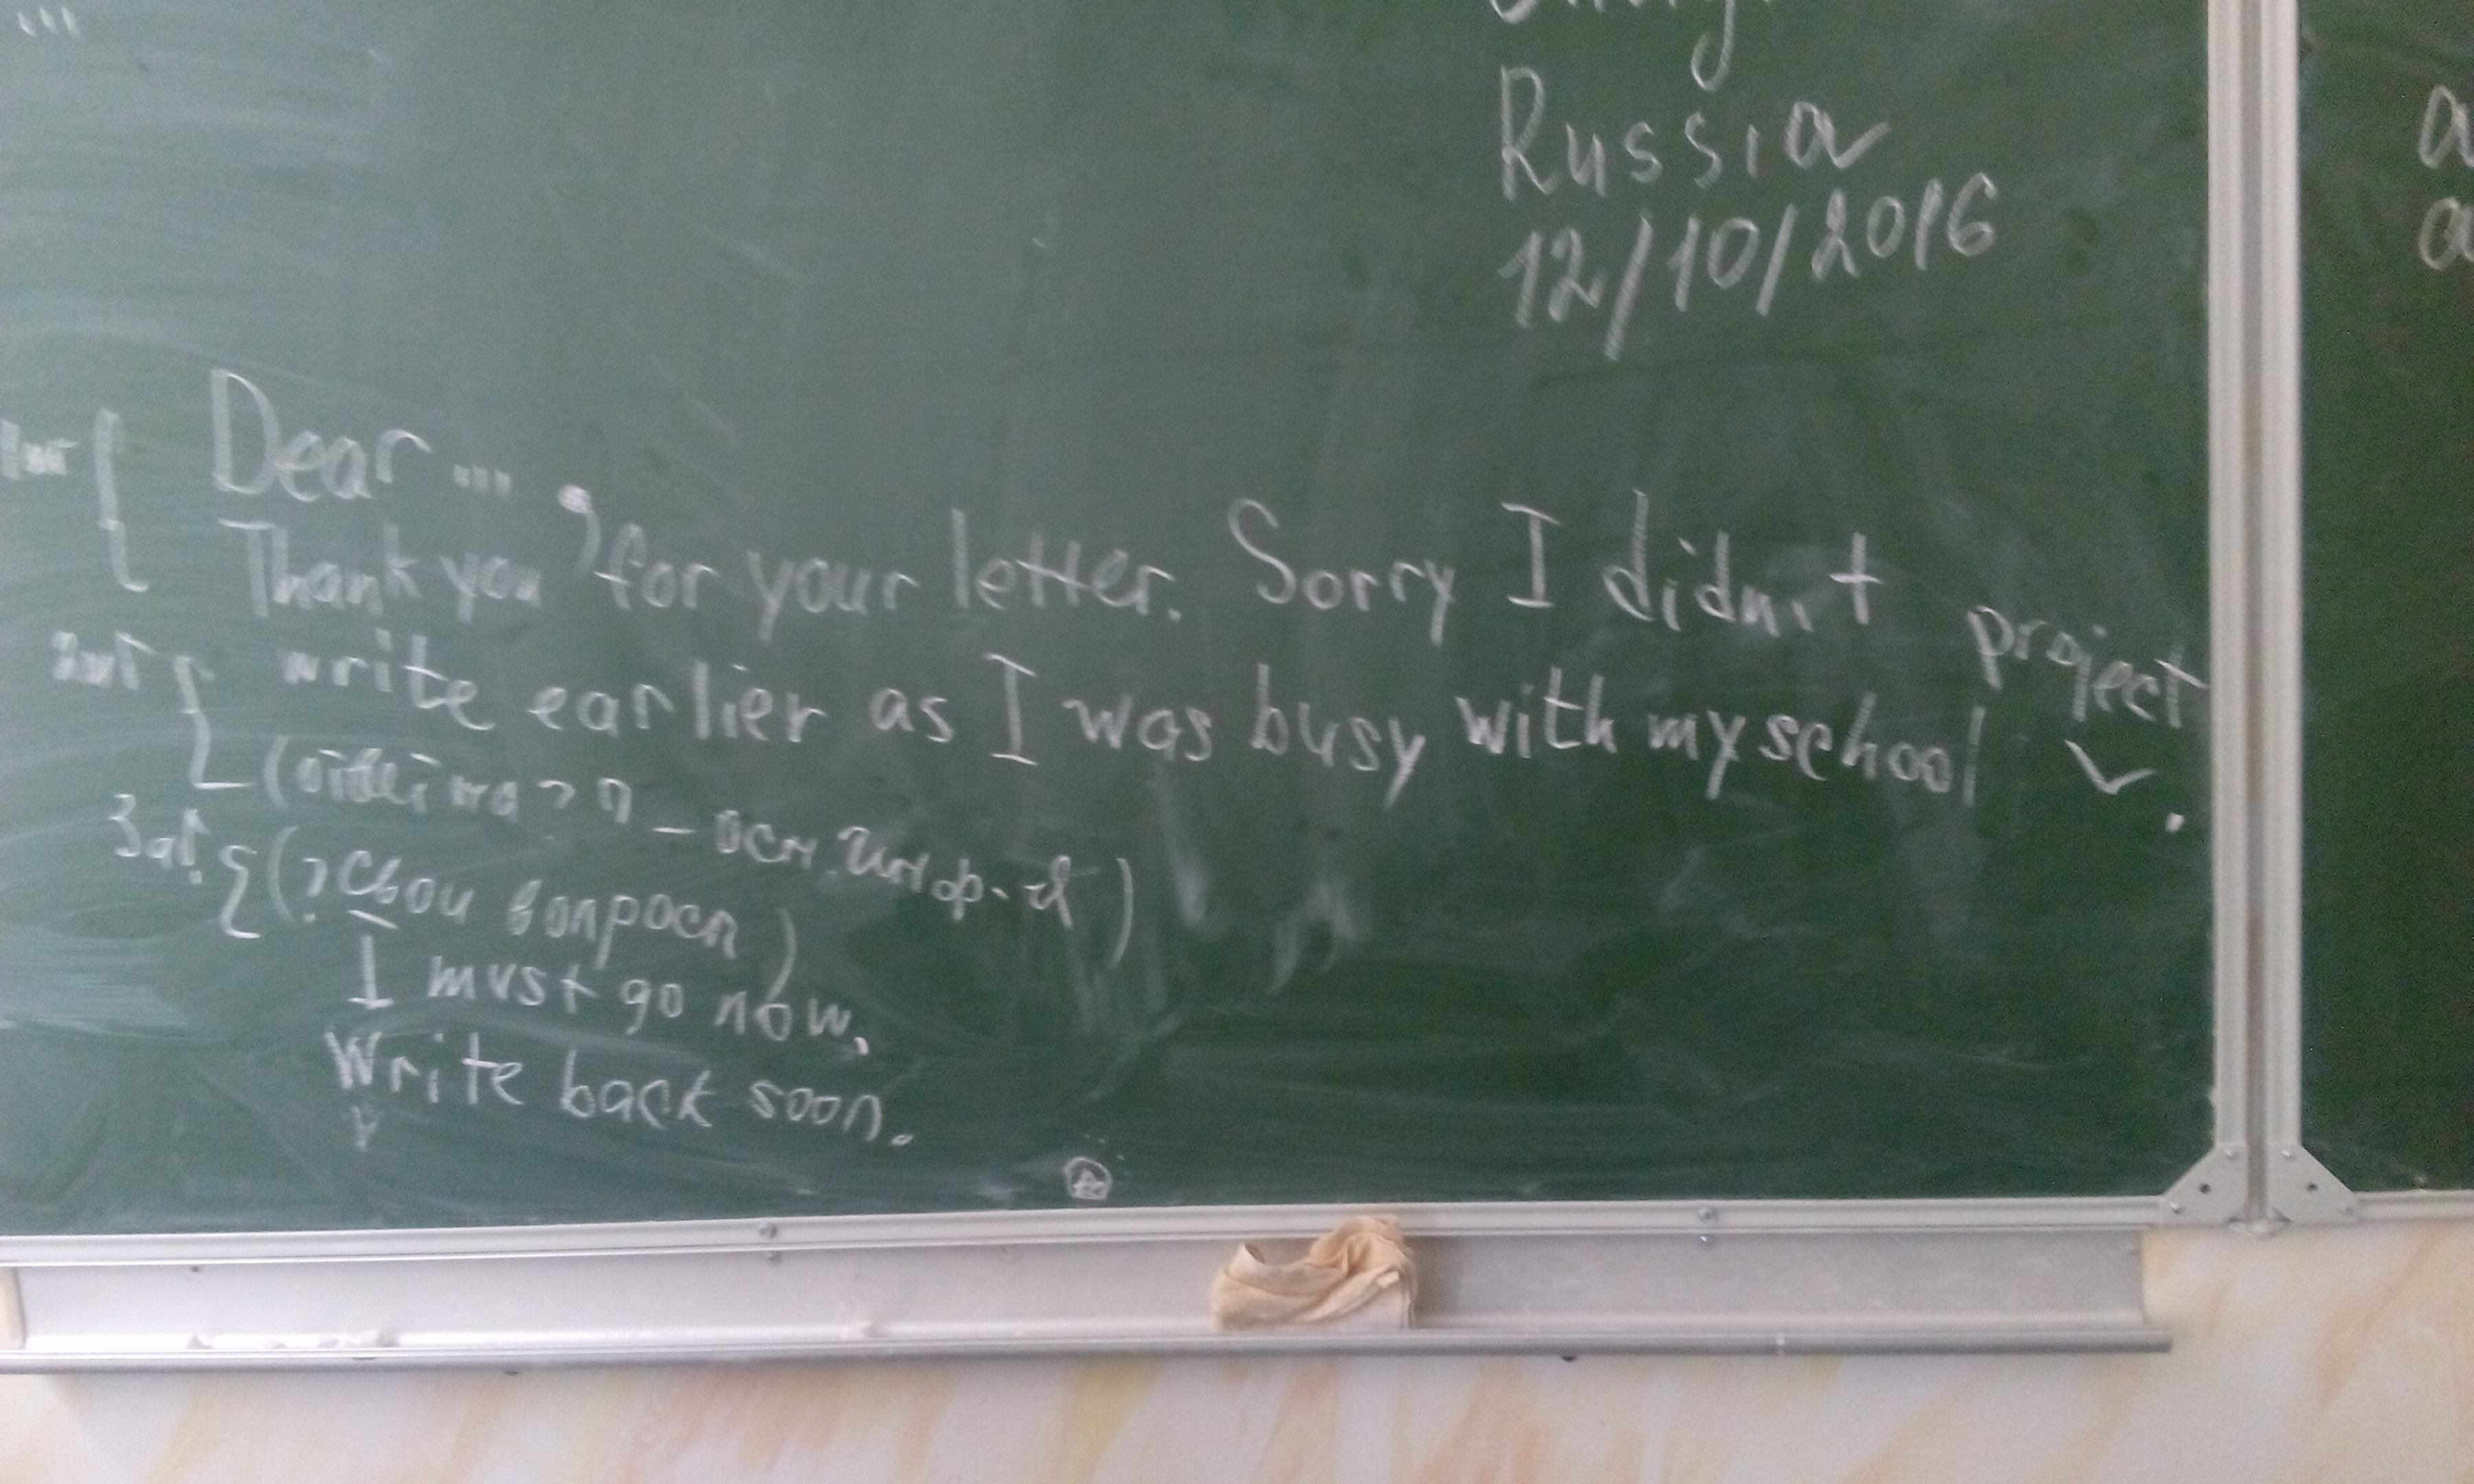 Russia
12/10/2016
Dear ... ,
Thank you for your letter. Sorry I didn't
write earlier as I was busy with my school project.
(ответ на ? ? - осн. инф-я)
3 аб. { (? свои вопросы)
I must go now.
Write back soon.